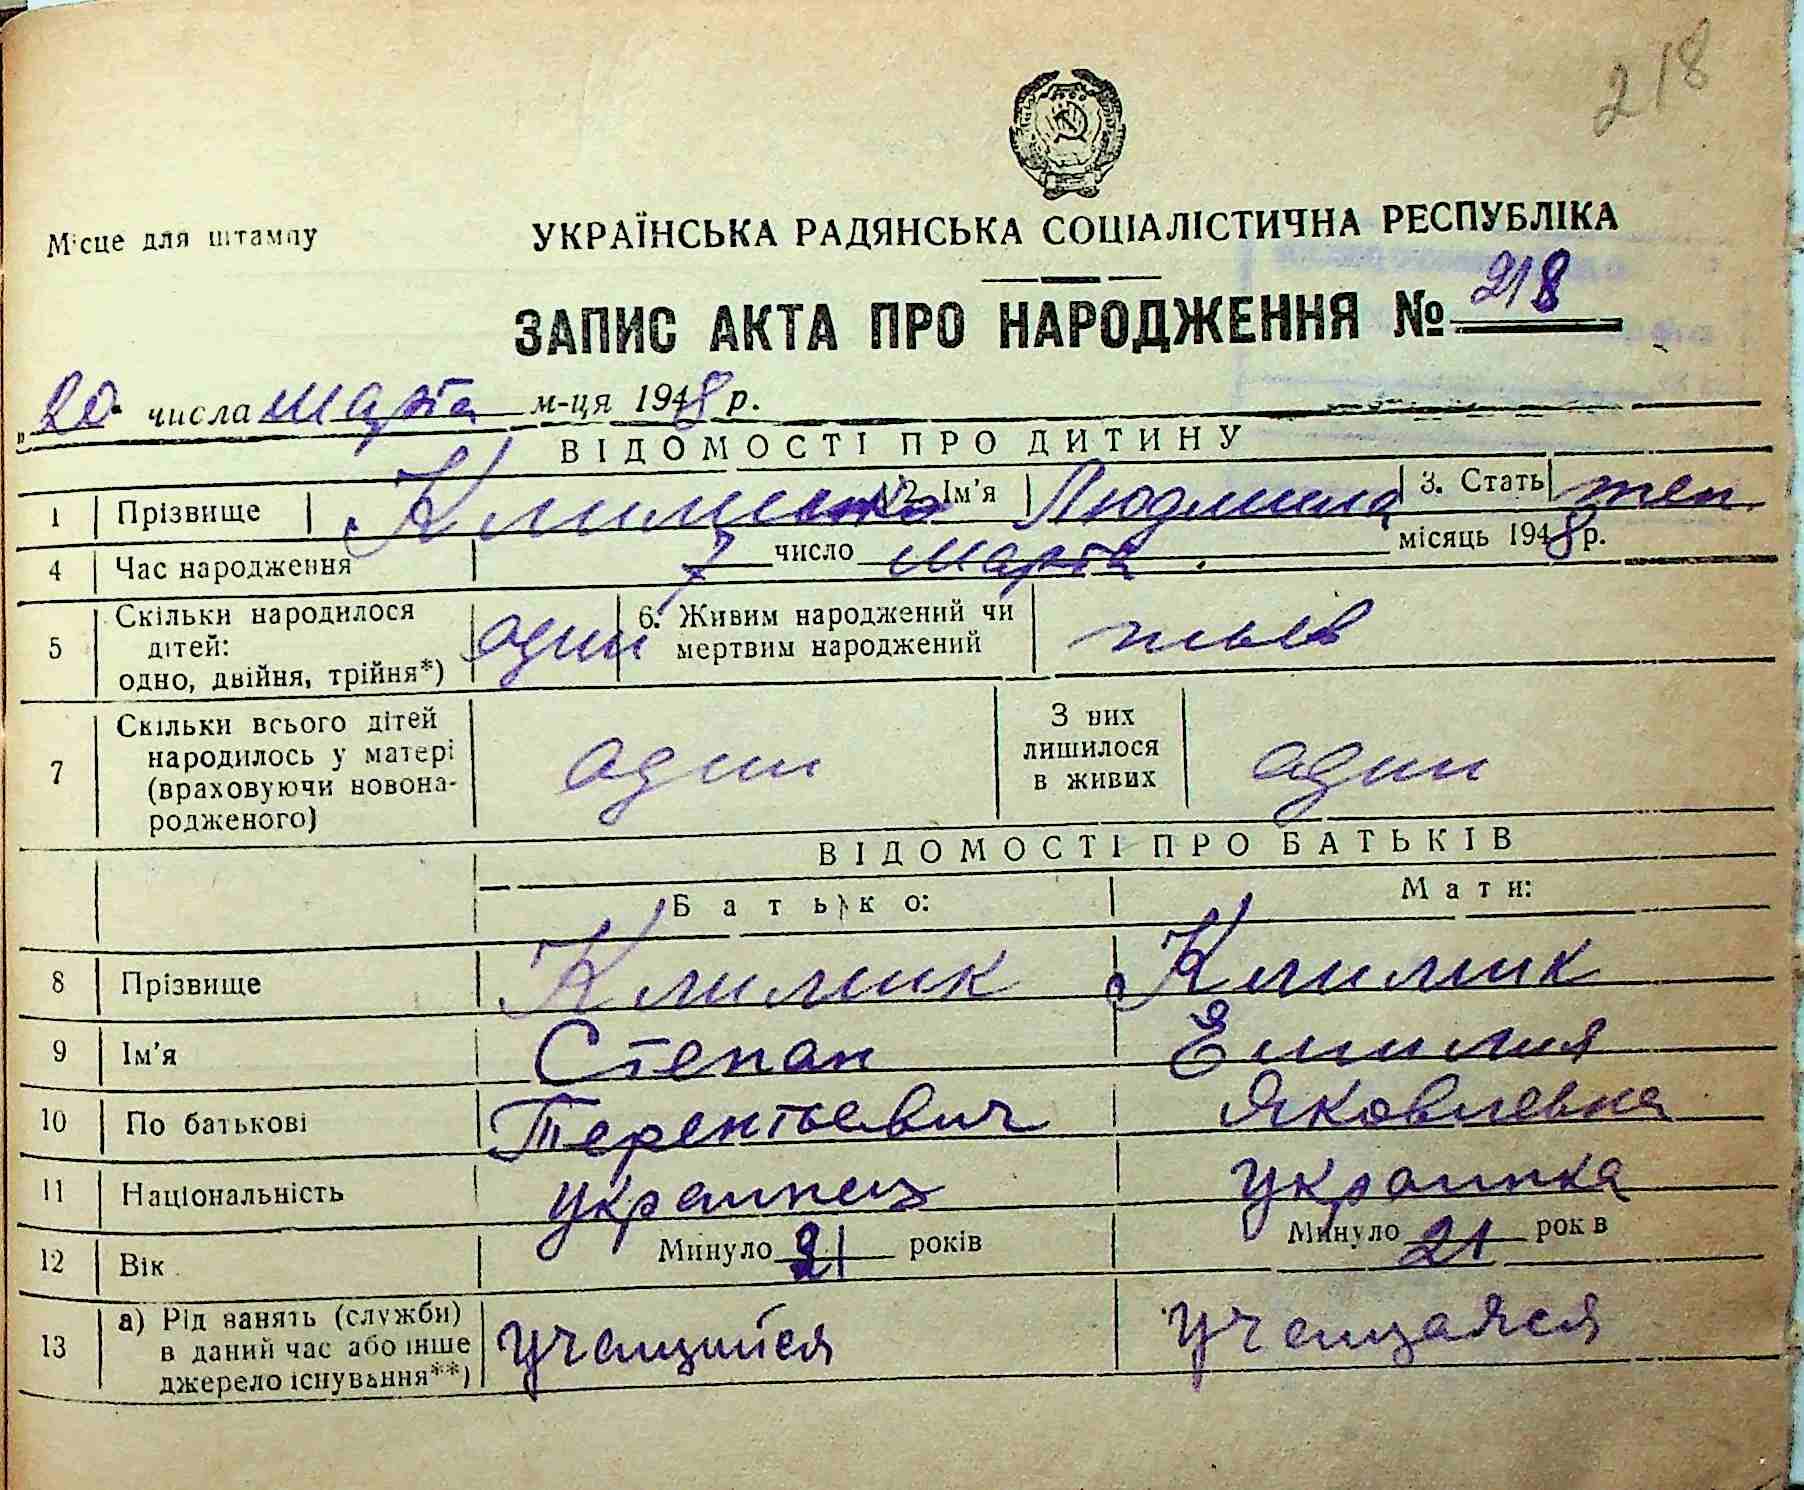 218
Місце для штампу
УКРАЇНСЬКА РАДЯНСЬКА СОЦІАЛІСТИЧНА РЕСПУБЛІКА
ЗАПИС АКТА ПРО НАРОДЖЕННЯ № 218
„20" числа марта м-ця 1948 р.
ВІДОМОСТІ ПРО ДИТИНУ
1 Прізвище 2. Ім'я Людмила 3. Стать жен.
4 Час народження 7 число марта місяць 1948 р.
5 Скільки народилося дітей: одно, двійня, трійня*) один 6. Живим народжений чи мертвим народжений
7 Скільки всього дітей народилось у матері (враховуючи новонародженого) один З них лишилося в живих один
ВІДОМОСТІ ПРО БАТЬКІВ
Батько: Мати:
8 Прізвище Климик Климик
9 Ім'я Степан Емилия
10 По батькові Терентьевич Яковлевна
11 Національність украинец украинка
12 Вік Минуло 21 років Минуло 21 рок в
13 а) Рід занять (служби) в даний час або інше джерело існування**) учащийся учащаяся